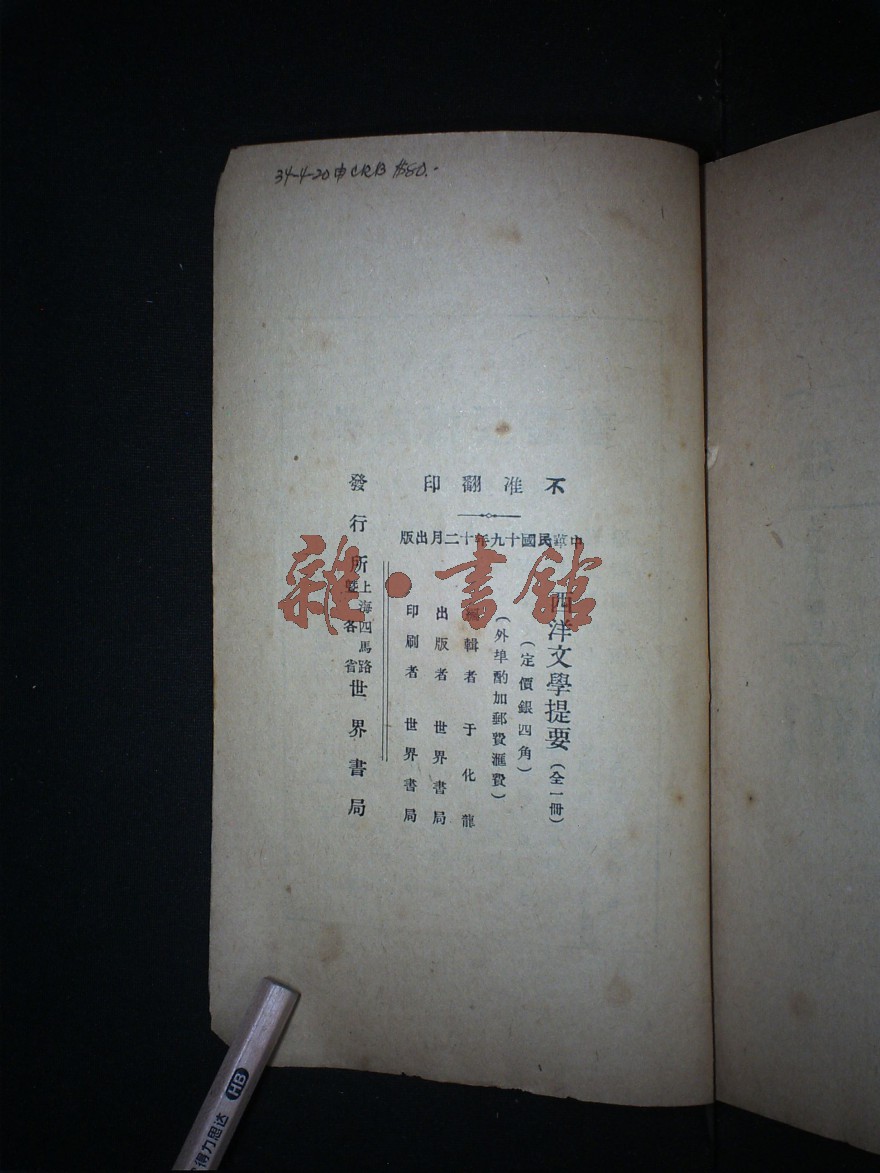 34-4-20中CRB $80.-
不准翻印
中華民國十九年十二月出版
西洋文學提要（全一冊）
（定價銀四角）
（外埠酌加郵費滙費）
編輯者 于化龍
出版者 世界書局
印刷者 世界書局
發行所 上海四馬路暨各省 世界書局
雜·書館
HB
得力思达